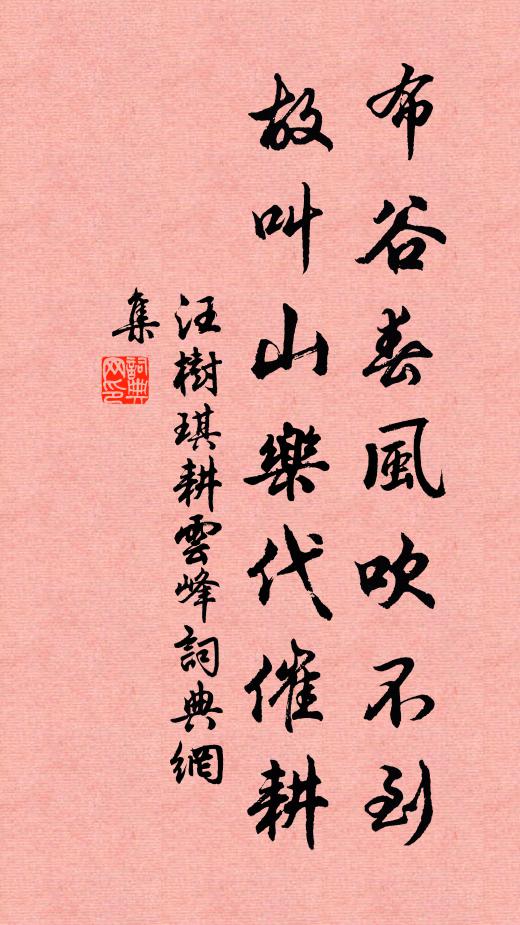 布谷春風吹不到
故叫山樂代催耕
汪樹琪耕雲峰詞典網
集
詞典
网印